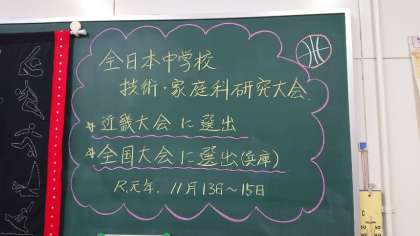 全日本中学校
技術・家庭科研究大会
☆近畿大会に選出
☆全国大会に選出(兵庫)
R元年、11月13日〜15日